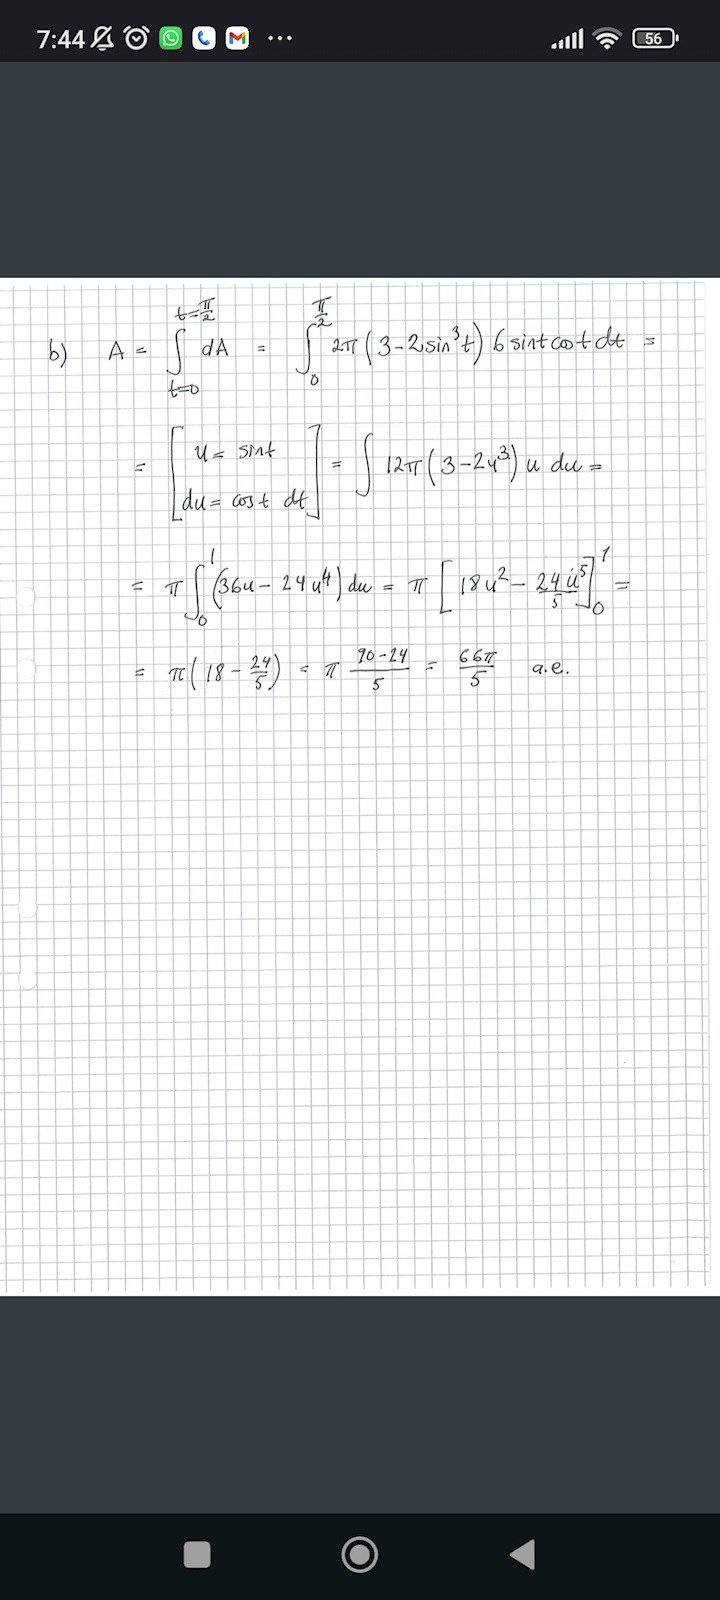 7:44 56
b) A = ∫_{t=0}^{t=π/2} dA = ∫_0^{π/2} 2π (3-2sin³t) 6 sint cost dt =
= [u = sint
du = cost dt] = ∫ 12π (3-2u³) u du =
= π ∫_0^1 (36u - 24u⁴) du = π [18u² - 24u⁵/5]_0^1 =
= π(18 - 24/5) = π (90-24)/5 = 66π/5 a.e.